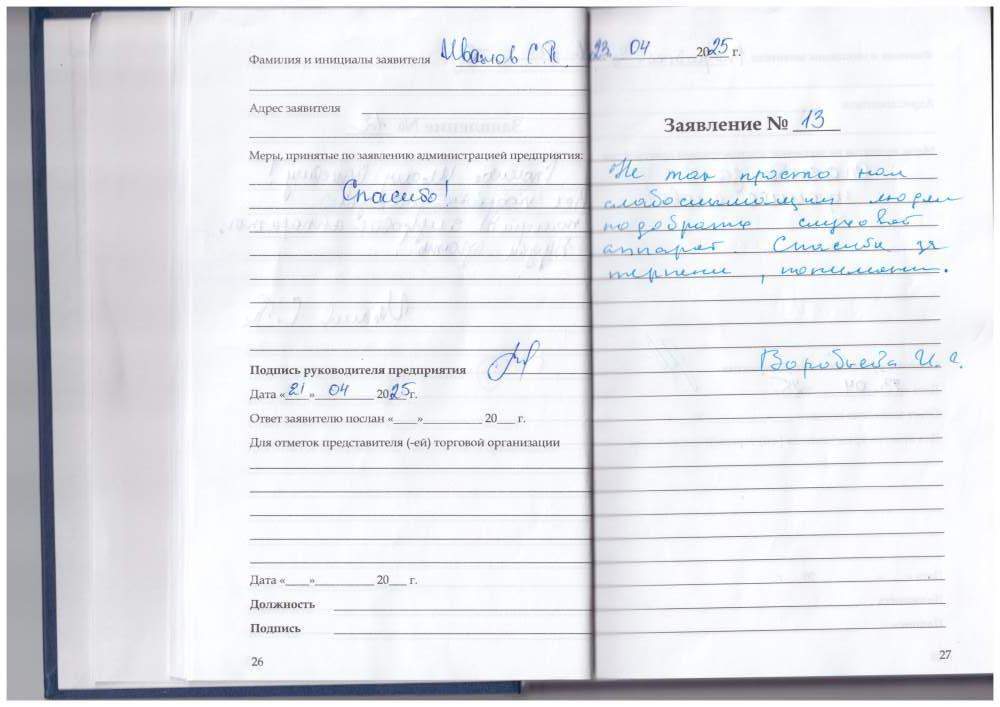 Фамилия и инициалы заявителя Иванов С П.
Адрес заявителя
Меры, принятые по заявлению администрацией предприятия:
Спасибо!
Подпись руководителя предприятия
Дата «21» 04 2025г.
Ответ заявителю послан «____»__________ 20___ г.
Для отметок представителя (-ей) торговой организации
Дата «____»__________ 20___ г.
Должность
Подпись
26
23 04 2025 г.
Заявление № 13
Не так просто нам
слабослышащим людям
подобрать слуховой
аппарат. Спасибо за
терпени, понимани.
Воробьева И. С.
27